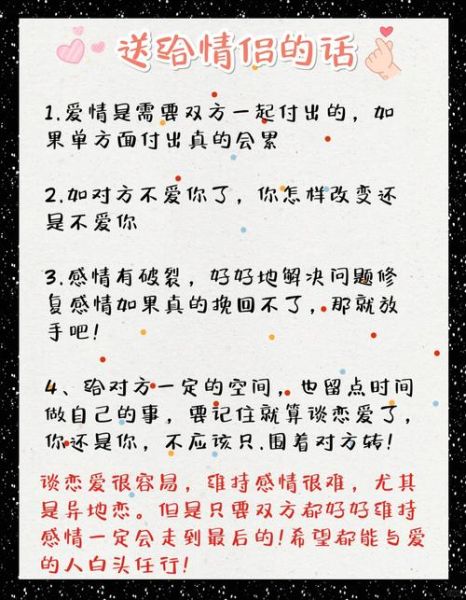 送给情侣的话
1.爱情是需要双方一起付出的,如
果单方面付出真的会累
2.如对方不爱你了,你怎样改变还
是不爱你
3.感情有破裂,好好地解决问题修
复感情如果真的挽回不了,那就放
手吧!
4、给对方一定的空间,也留点时间
做自己的事,要记住就算谈恋爱了,
你还是你,不应该只.围着对方转!
谈恋爱很容易,维持感情很难,尤其
是异地恋。但是只要双方都好好维持
感情一定会走到最后的!希望都能与爱
的人白头任行!